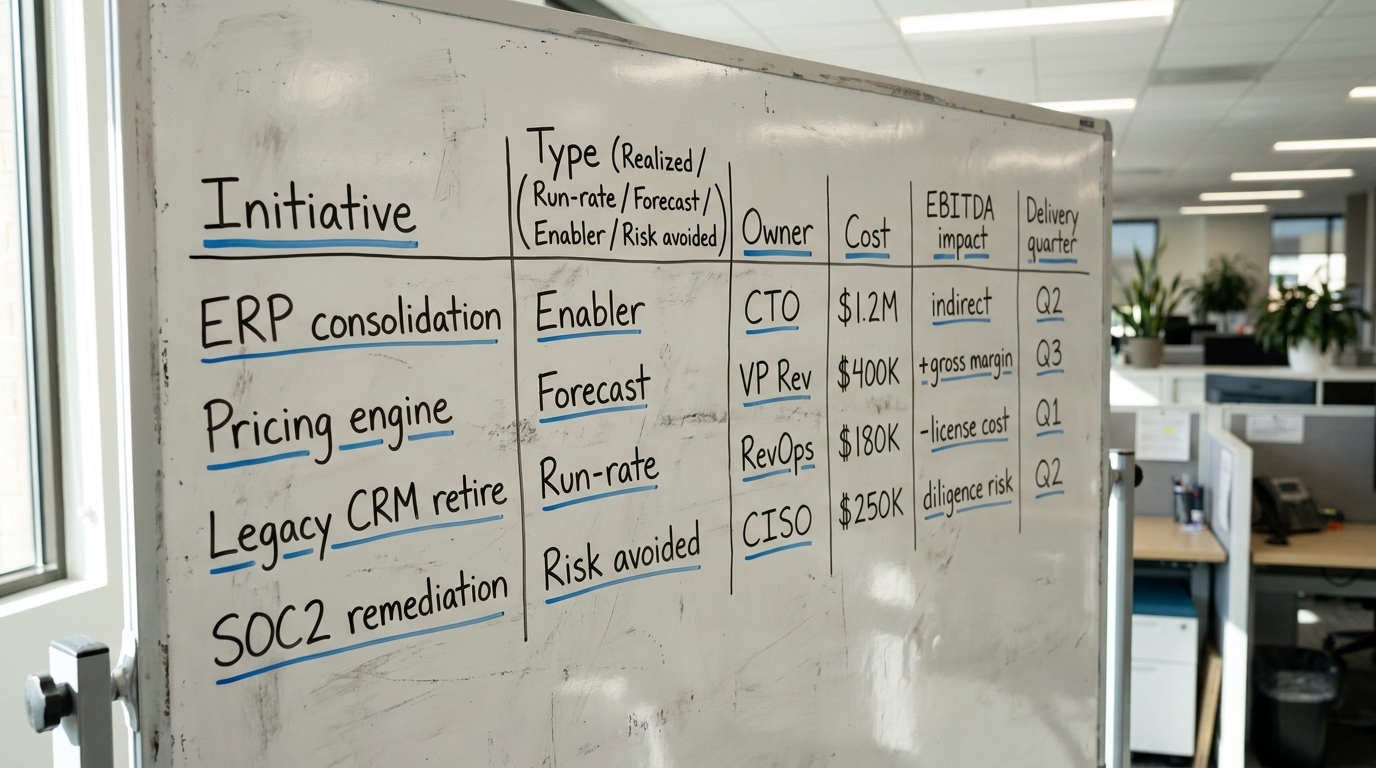 Initiative | Type (Realized / Run-rate / Forecast / Enabler / Risk avoided) | Owner | Cost | EBITDA impact | Delivery quarter
ERP consolidation | Enabler | CTO | $1.2M | indirect | Q2
Pricing engine | Forecast | VP Rev | $400K | +gross margin | Q3
Legacy CRM retire | Run-rate | RevOps | $180K | -license cost | Q1
SOC2 remediation | Risk avoided | CISO | $250K | diligence risk | Q2